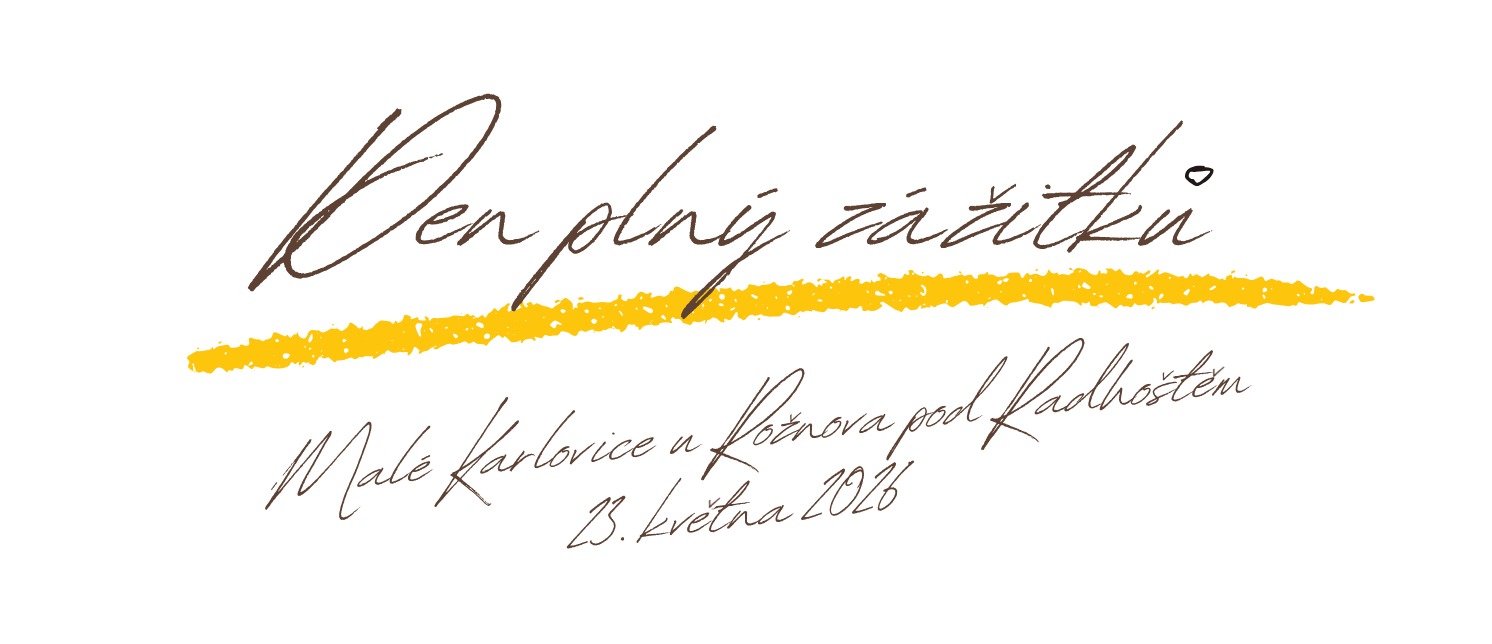 Den plný zážitků
Malé Karlovice u Rožnova pod Radhoštěm
23. května 2026